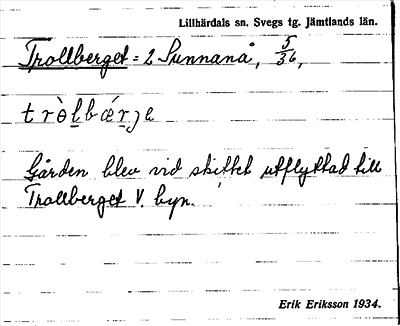 Lillhärdals sn. Svegs tg. Jämtlands län.
Trollberget = 2 Sunnanå, 5/36,
tròlbǽrje
Gården blev vid skiftet utflyttad till
Trollberget V. byn.
Erik Eriksson 1934.